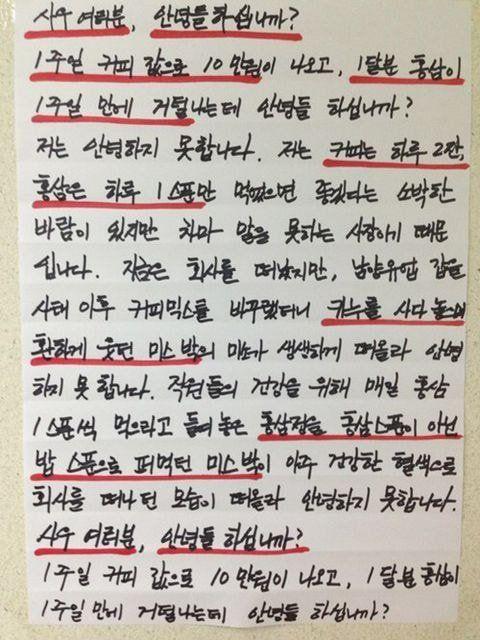 사우 여러분, 안녕들 하십니까?
1주일 커피 값으로 10만원이 나오고, 1달분 홍삼이
1주일 만에 거덜나는데 안녕들 하십니까?
저는 안녕하지 못합니다. 저는 커피는 하루 2잔,
홍삼은 하루 1스푼만 먹었으면 좋겠다는 소박한
바람이 있지만 차마 말을 못하는 사장이기 때문
입니다. 지금은 회사를 떠났지만, 남양유업 갑을
사태 이후 커피믹스를 바꾸랬더니 카누를 사다 놓으며
환하게 웃던 미스 박의 미소가 생생하게 떠올라 안녕
하지 못 합니다. 직원들의 건강을 위해 매일 홍삼
1스푼씩 먹으라고 들여놓은 홍삼정을 홍삼스푼이 아닌
밥 스푼으로 퍼먹던 미스 박이 아주 건강한 혈색으로
회사를 떠나던 모습이 떠올라 안녕하지 못합니다.
사우 여러분, 안녕들 하십니까?
1주일 커피 값으로 10만원이 나오고, 1달분 홍삼이
1주일 만에 거덜나는데 안녕들 하십니까?